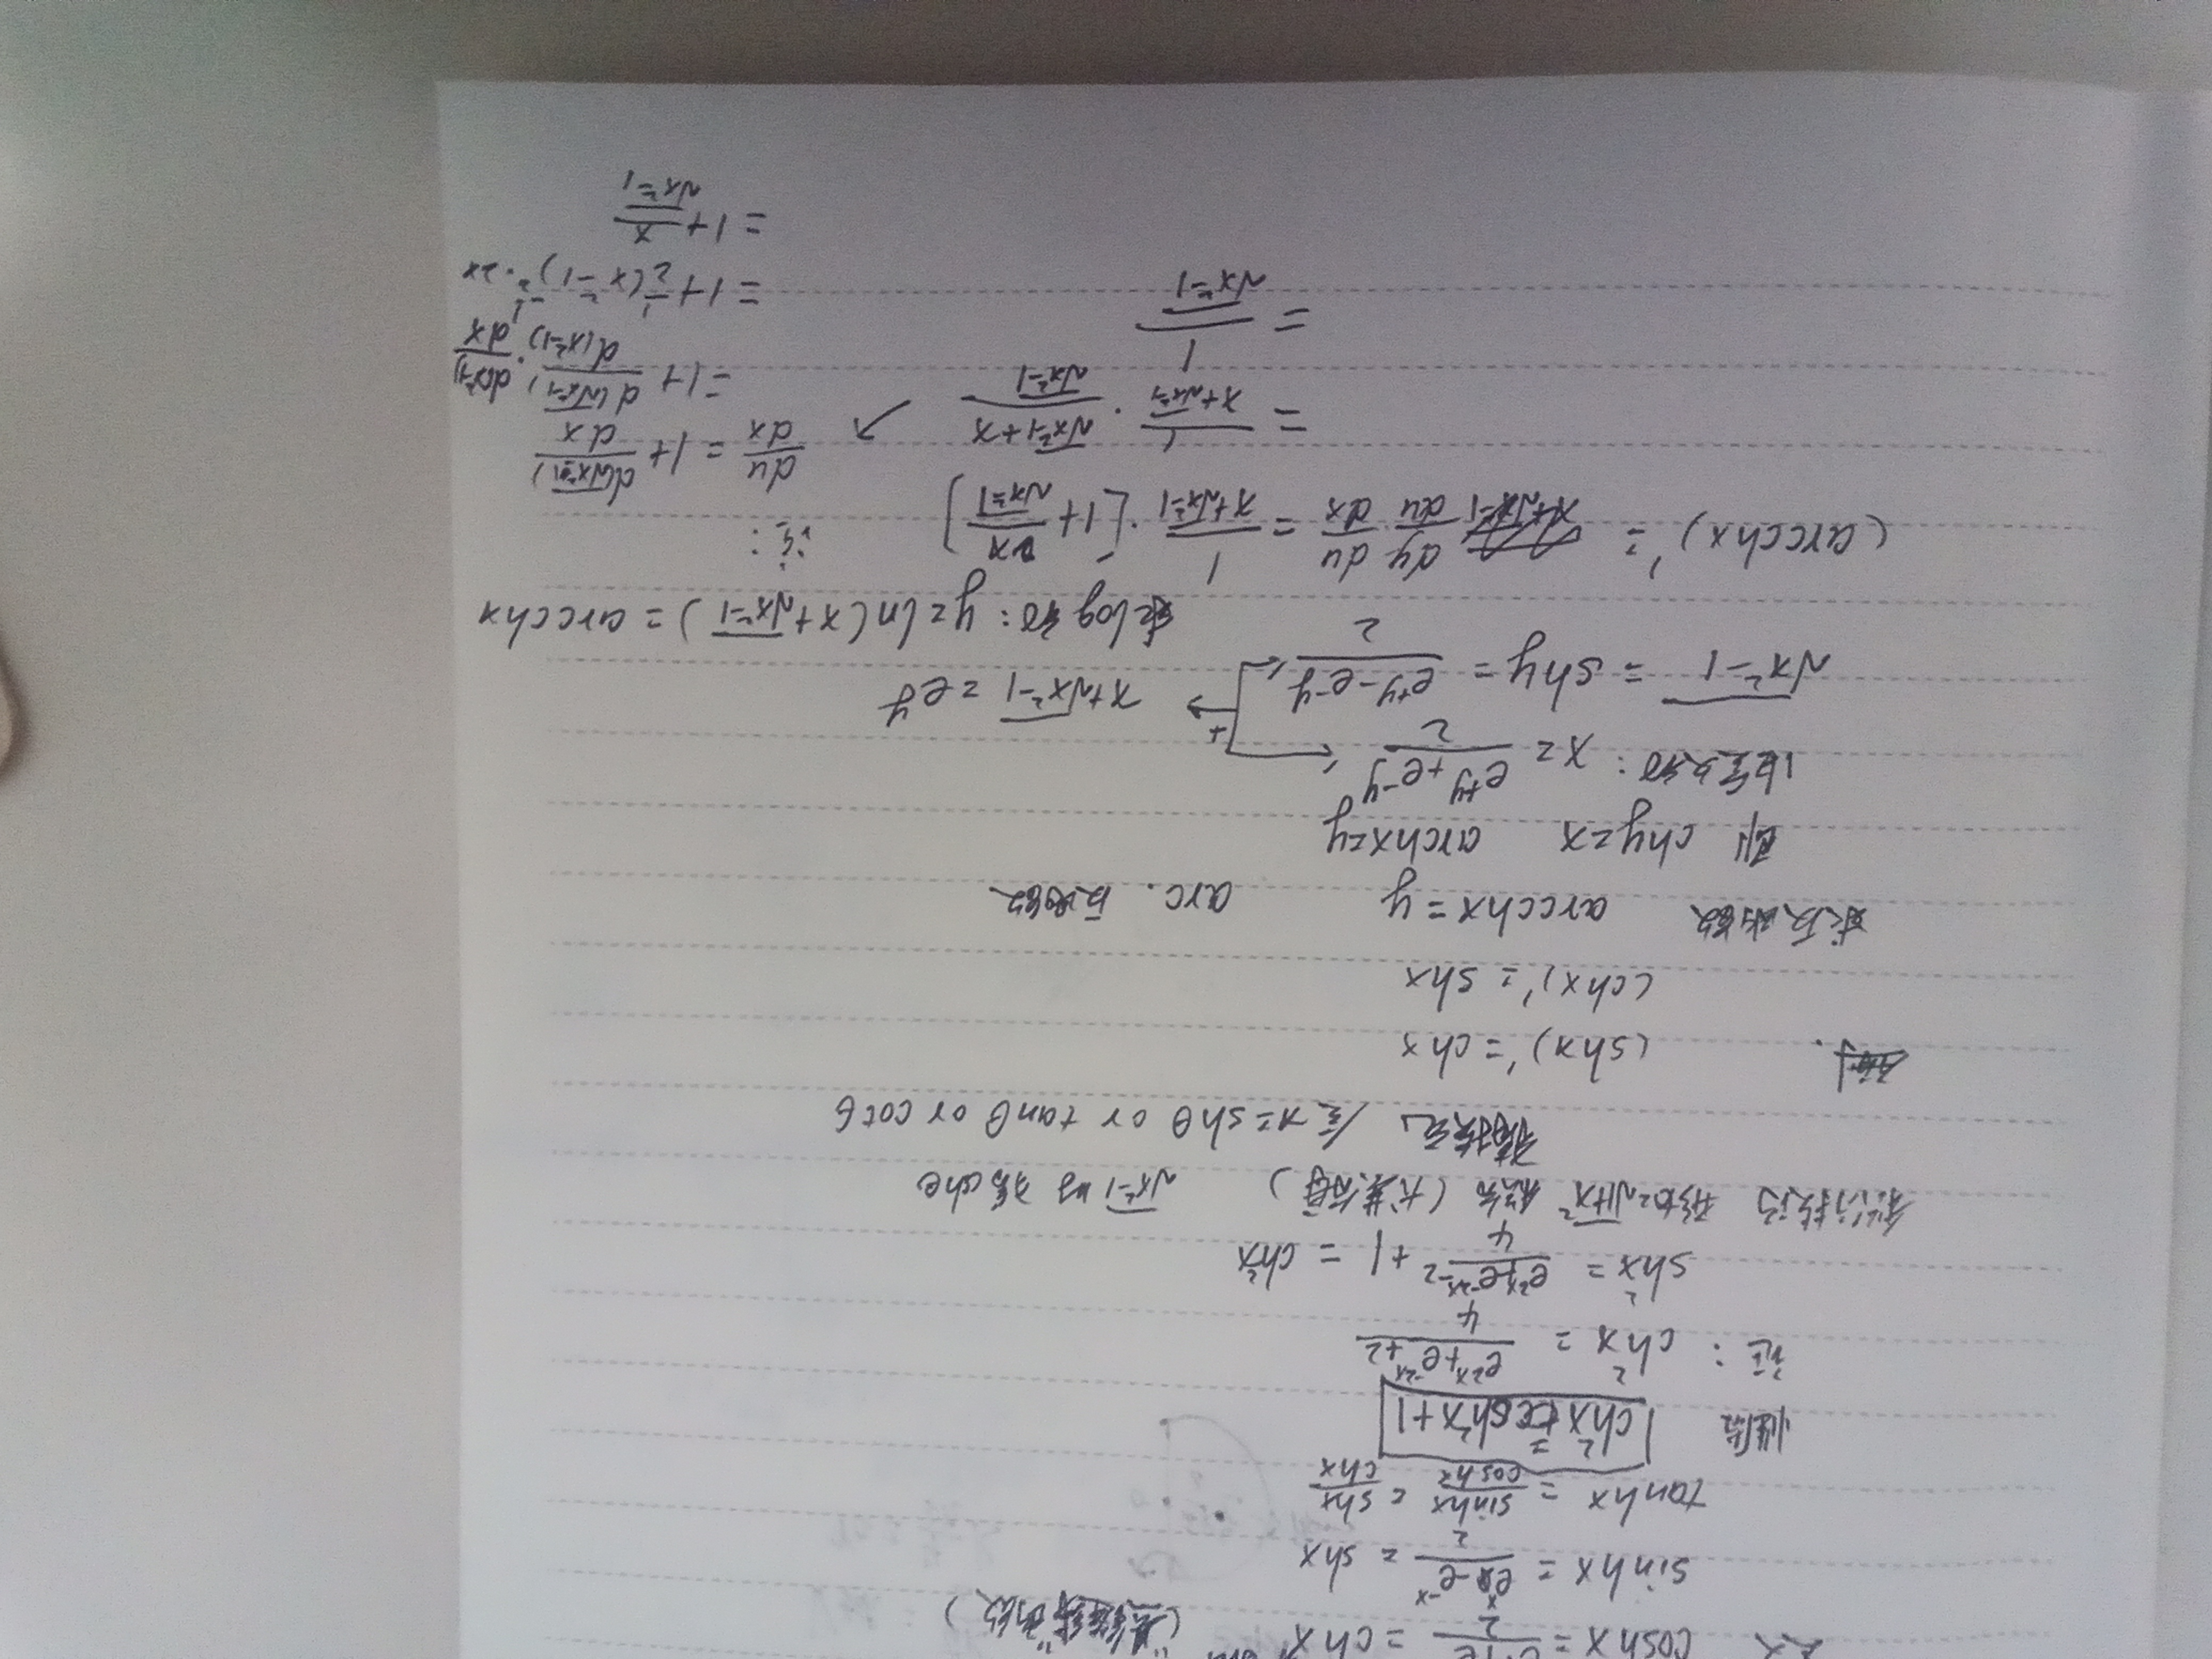 定义 coshx = 2 = chx
sinhx = (e^x - e^-x)/2 = shx
tanhx = sinhx/coshx = shx/chx
性质 ch²x = sh²x+1
证: ch²x = (e^2x + e^-2x + 2)/4
sh²x = (e^2x + e^-2x - 2)/4 +1 = ch²x
形如 √1+x² √x²-1
令x=shθ or tanθ or cotθ
(shx)' = chx
(chx)' = shx
求反函数 arcchx = y arc. 反函数
则 chy=x archx=y
x = (e^+y + e^-y)/2
√x²-1 = shy = (e^+y - e^-y)/2
+ x+√x²-1 = e^y
log y=ln(x+√x²-1) = arcchx
(arcchx)' = dy/du du/dx = 1/(x+√x²-1) · [1+ x/√x²-1]
= 1/(x+√x²-1) · (√x²-1 + x)/√x²-1
= 1/√x²-1
du/dx = 1+ d(√x²-1)/dx
= 1+ d(√x²-1)/d(x²-1) · d(x²-1)/dx
= 1+ 1/2 (x²-1)^-1/2 · 2x
= 1+ x/√x²-1